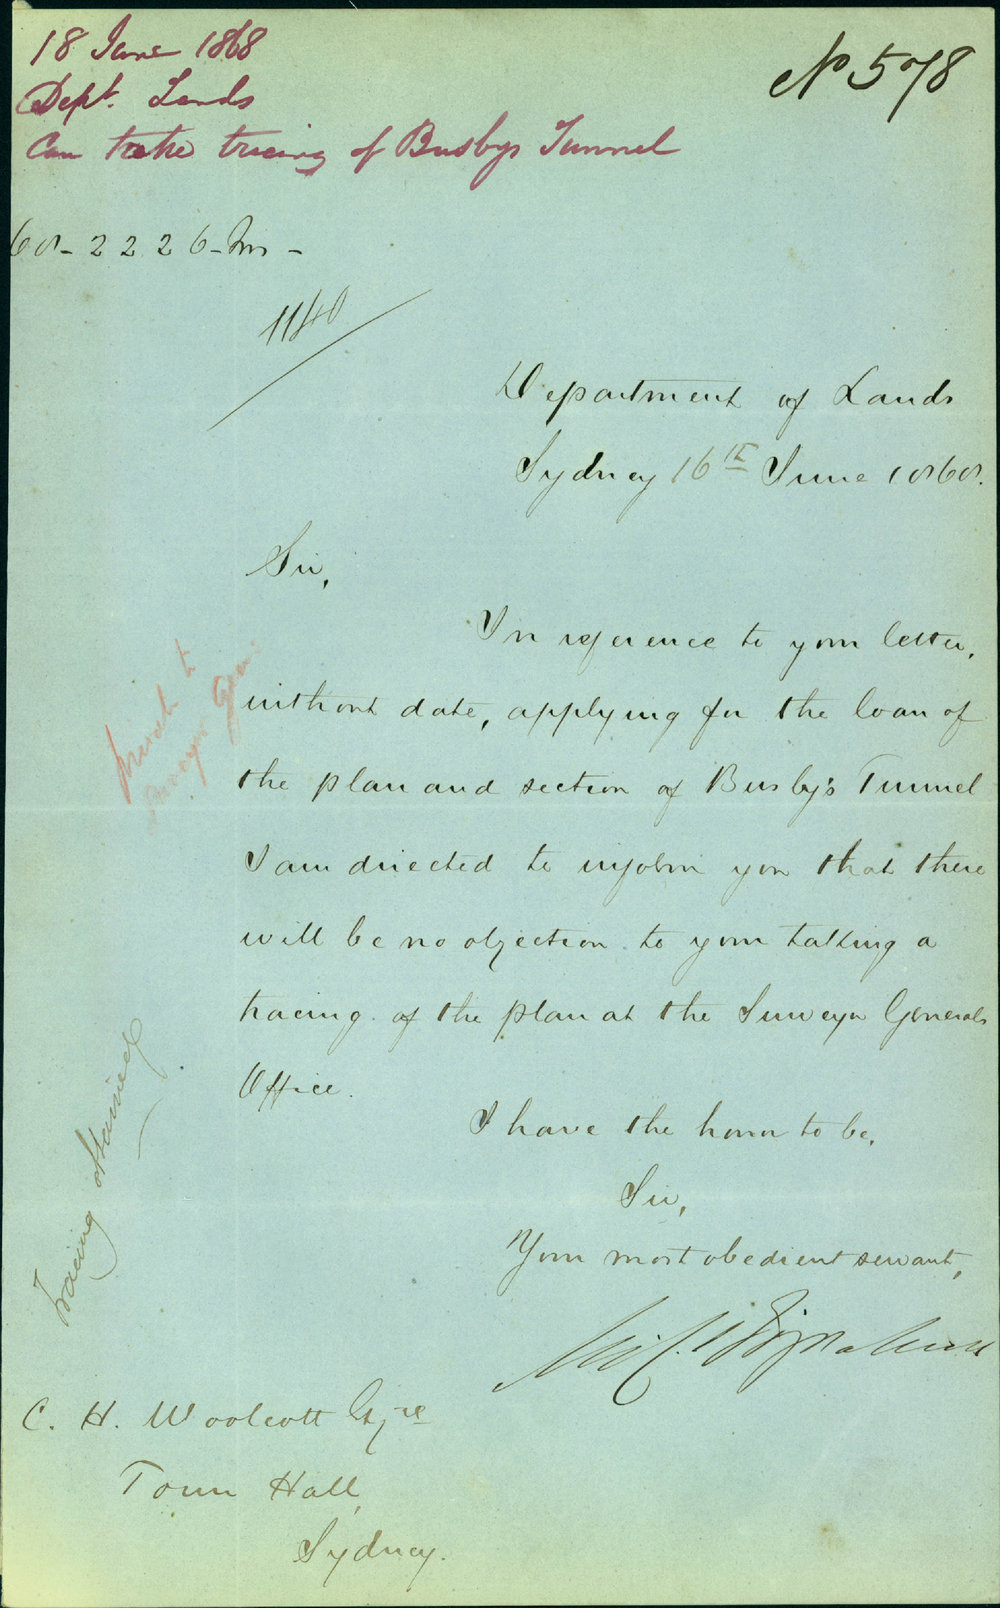 18 June 1868
Dept. Lands
Can take tracing of Busbys Tunnel
No 578
68-2226-Ms-
1140
Department of Lands
Sydney 16th June 1868.
Sir,
In reference to your letter,
without date, applying for the loan of
the plan and section of Busby's Tunnel
I am directed to inform you that there
will be no objection to your taking a
tracing of the plan at the Surveyor Generals
Office.
I have the honor to be,
Sir,
Your most obedient servant,
C. H. Woolcott Esqre
Town Hall,
Sydney.
Tracing obtained